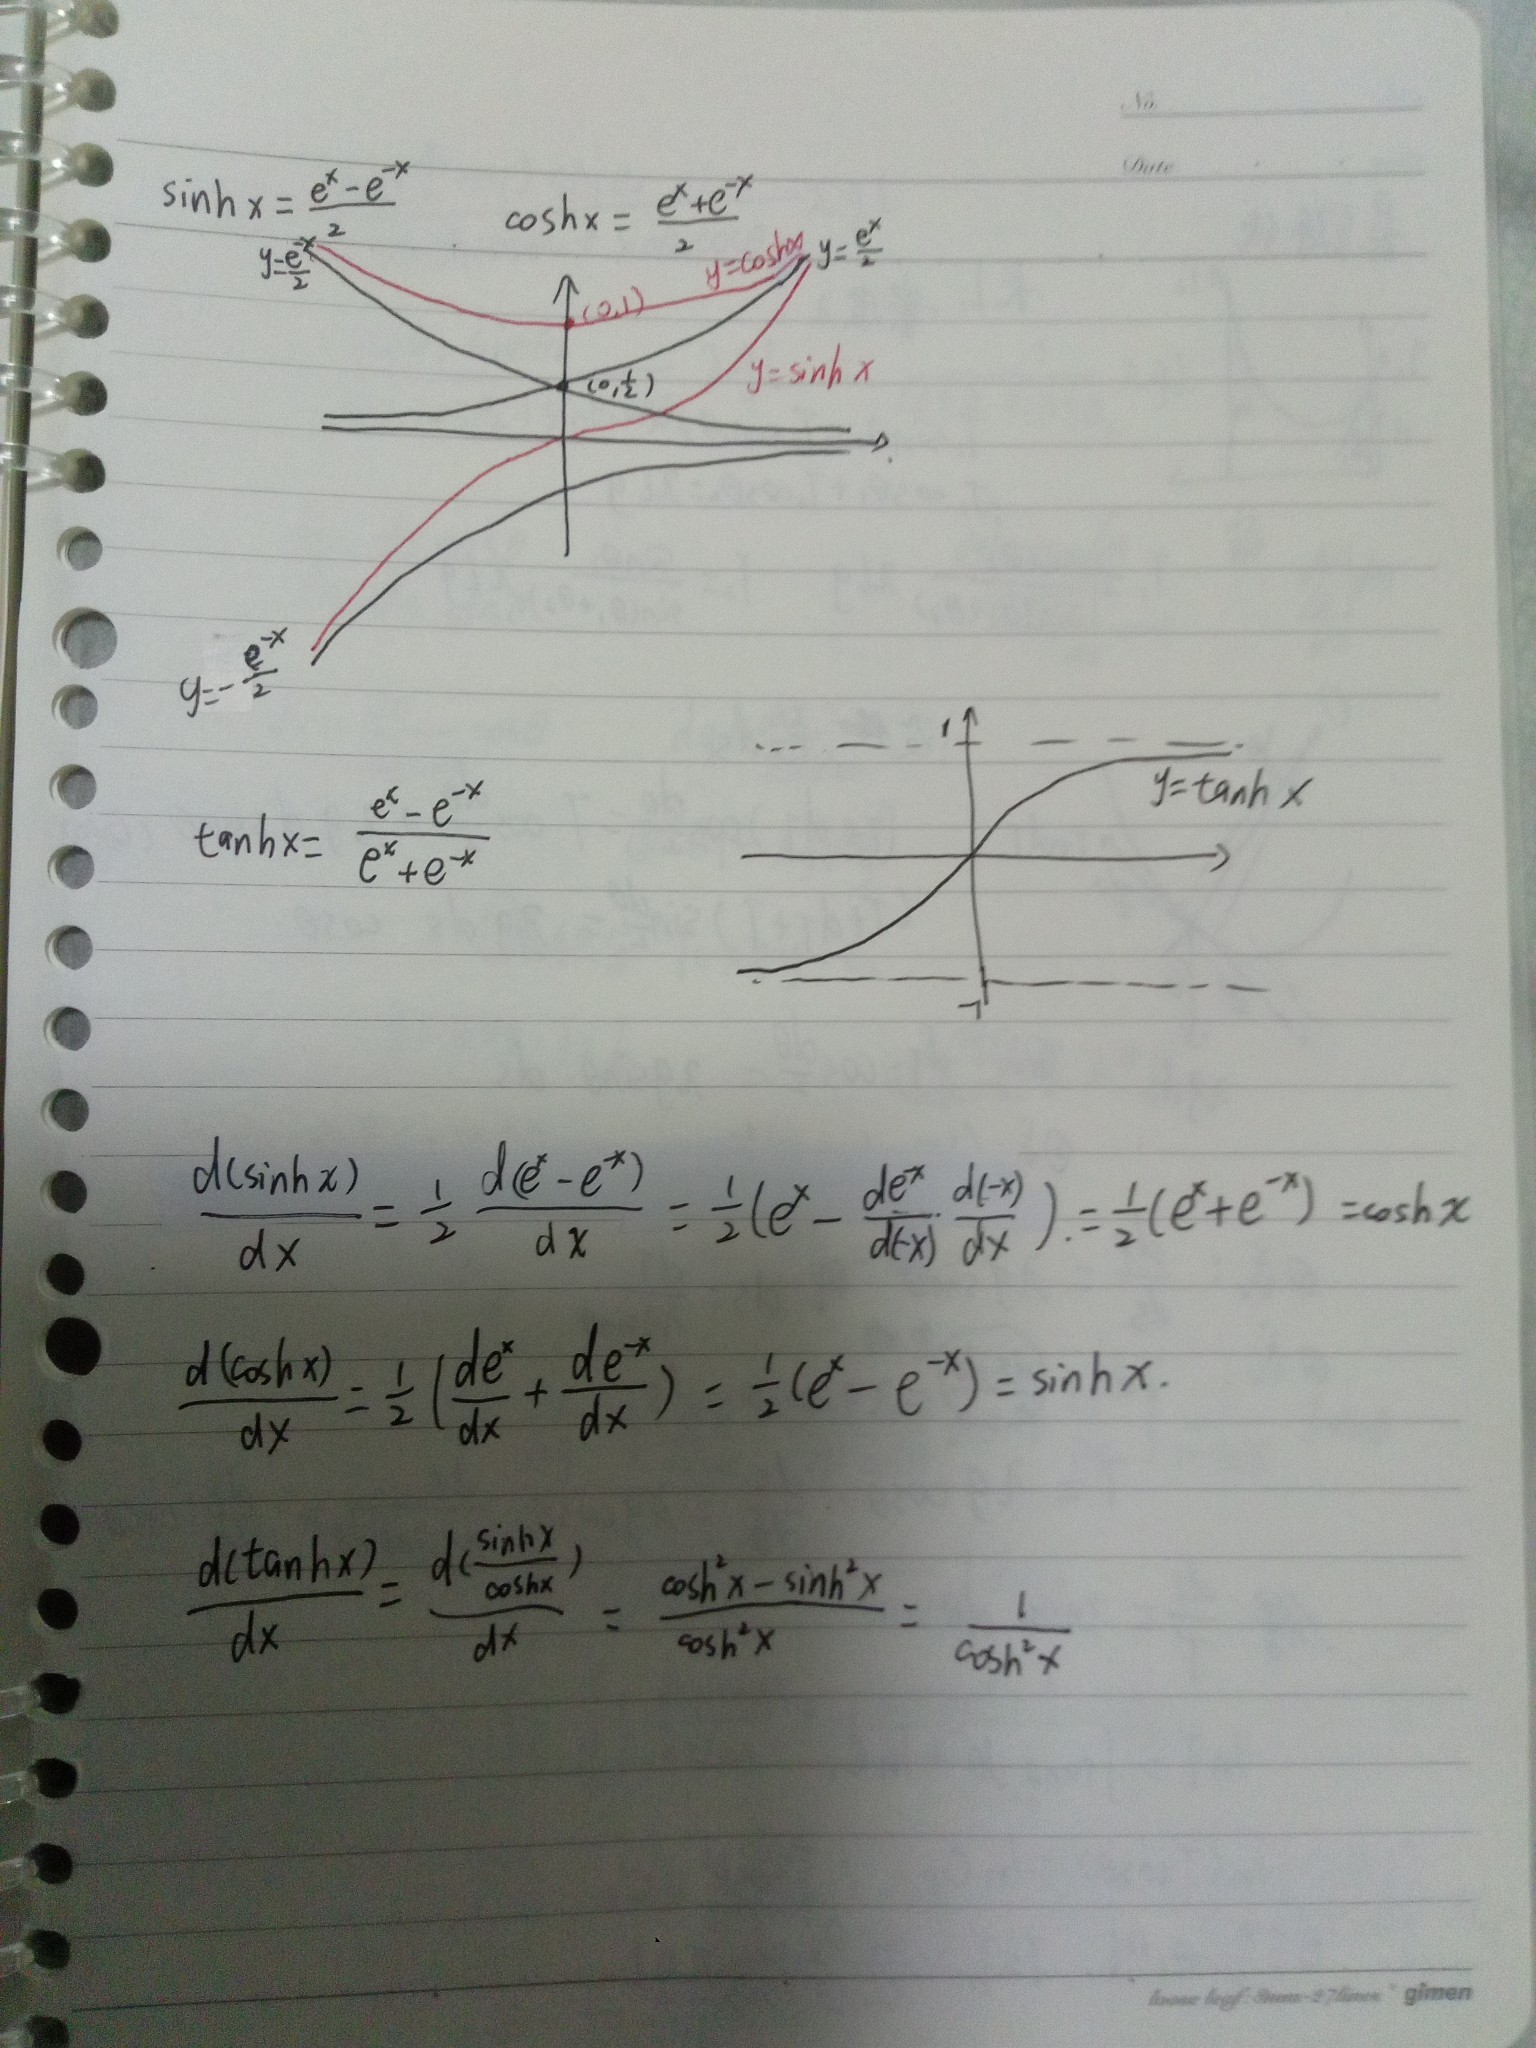 No.
Date
sinh x = (e^x - e^-x)/2
cosh x = (e^x + e^-x)/2
y = e^-x/2
y = cosh x
y = e^x/2
(0, 1)
y = sinh x
(0, 1/2)
y = - e^-x/2
1
y = tanh x
tanh x = (e^x - e^-x)/(e^x + e^-x)
-1
d(sinh x)/dx = 1/2 d(e^x - e^-x)/dx = 1/2 (e^x - de^-x/d(-x) · d(-x)/dx). = 1/2 (e^x + e^-x) = cosh x
d(cosh x)/dx = 1/2 (de^x/dx + de^-x/dx) = 1/2 (e^x - e^-x) = sinh x.
d(tanh x)/dx = d(sinh x/cosh x)/dx = (cosh²x - sinh²x)/cosh²x = 1/cosh²x
gimen